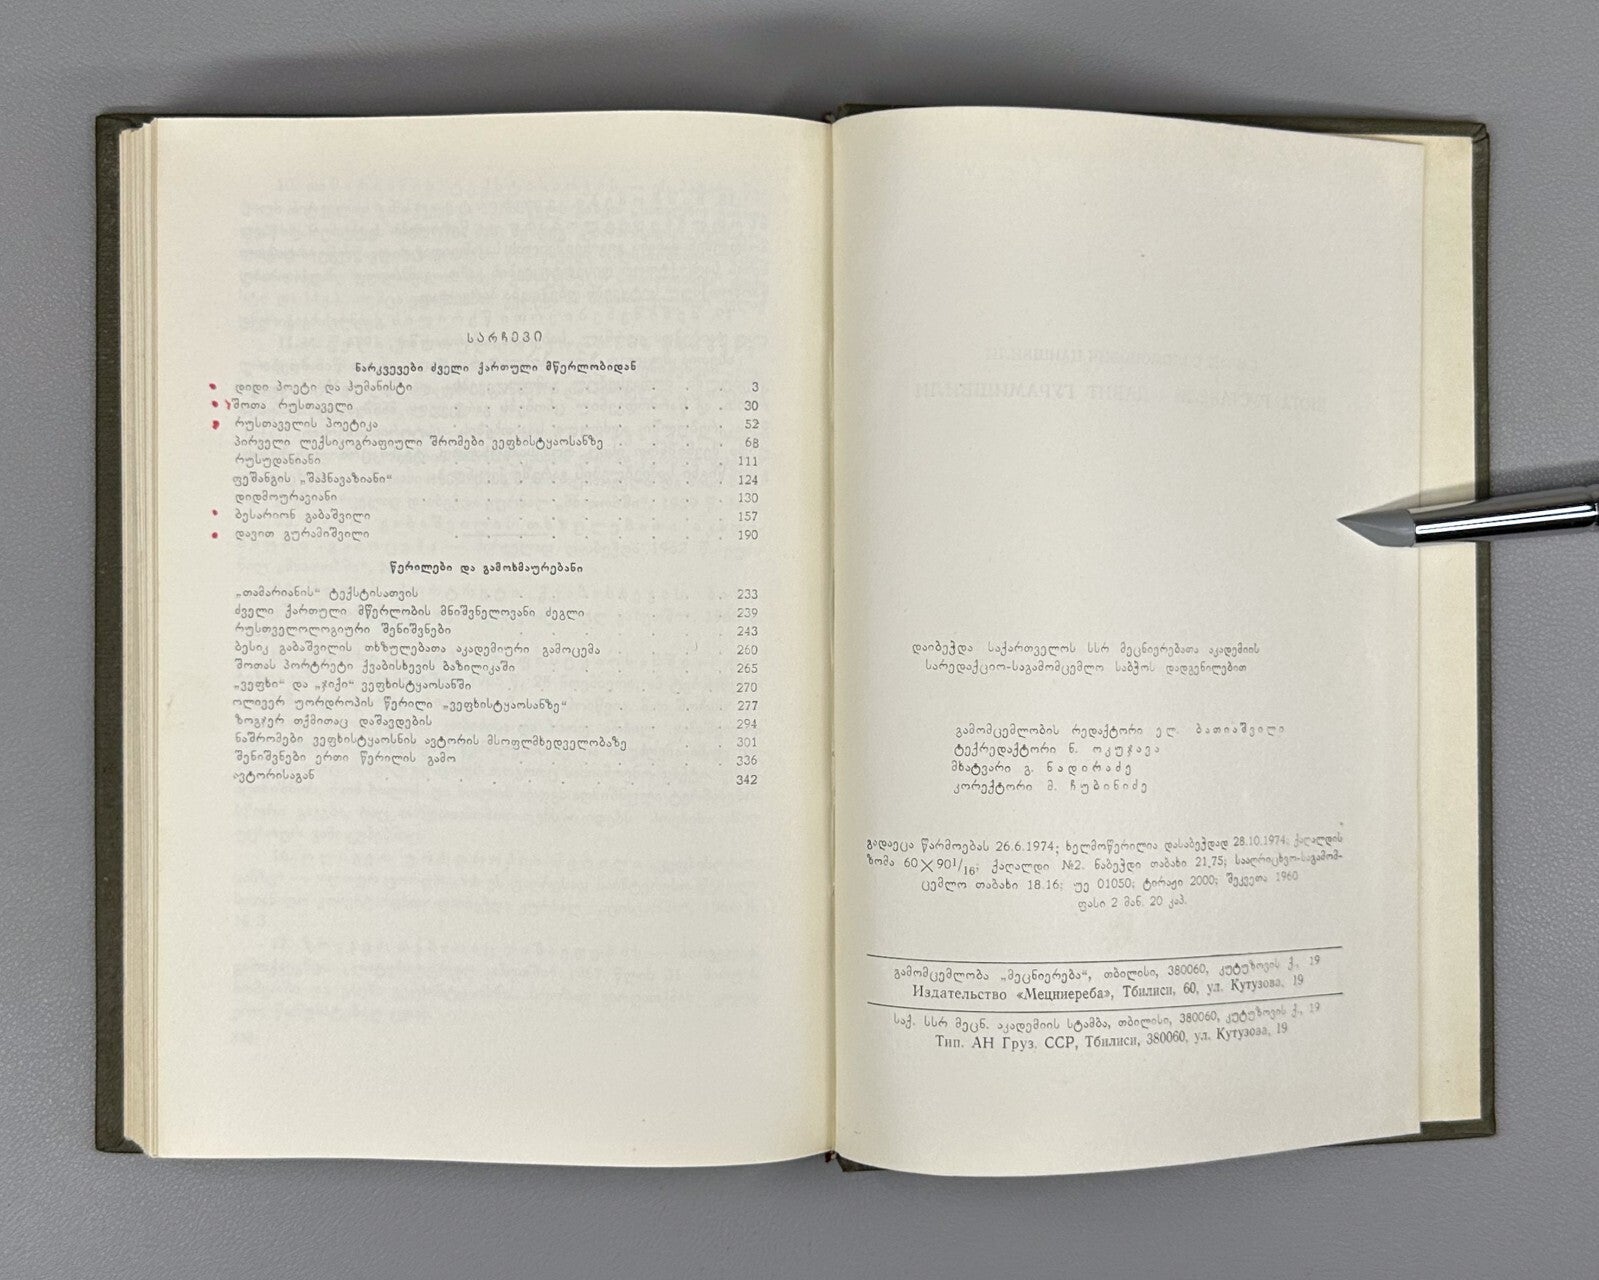 სარჩევი
ნარკვევები ძველი ქართული მწერლობიდან
დიდი პოეტი და ჰუმანისტი . . . . . 3
შოთა რუსთაველი . . . . . 30
რუსთაველის პოეტიკა . . . . . 52
პირველი ლექსიკოგრაფიული შრომები ვეფხისტყაოსანზე . . . . . 68
რუსუდანიანი . . . . . 111
ფეშანგის „შაჰნავაზიანი“ . . . . . 124
დიდმოურავიანი . . . . . 130
ბესარიონ გაბაშვილი . . . . . 157
დავით გურამიშვილი . . . . . 190
წერილები და გამოხმაურებანი
„თამარიანის“ ტექსტისათვის . . . . . 233
ძველი ქართული მწერლობის მნიშვნელოვანი ძეგლი . . . . 239
რუსთველოლოგიური შენიშვნები . . . . . 243
ბესიკ გაბაშვილის თხზულებათა აკადემიური გამოცემა . . . . 260
შოთას პორტრეტი ქვაბისხევის ბაზილიკაში . . . . . 265
„ვეფხი“ და „ჯიქი“ ვეფხისტყაოსანში . . . . . 270
ოლივერ უორდროპის წერილი „ვეფხისტყაოსანზე“ . . . . . 277
ზოგჯერ თქმითაც დაშავდების . . . . . 294
ნაშრომები ვეფხისტყაოსნის ავტორის მსოფლმხედველობაზე . . . 301
შენიშვნები ერთი წერილის გამო . . . . . 336
ავტორისაგან . . . . . 342
დაიბეჭდა საქართველოს სსრ მეცნიერებათა აკადემიის
სარედაქციო-საგამომცემლო საბჭოს დადგენილებით
გამომცემლობის რედაქტორი ელ. ბათიაშვილი
ტექრედაქტორი ნ. ოკუჯავა
მხატვარი გ. ნადირაძე
კორექტორი მ. ჩუბინიძე
გადაეცა წარმოებას 26.6.1974; ხელმოწერილია დასაბეჭდად 28.10.1974; ქაღალდის
ზომა 60×90¹/₁₆; ქაღალდი №2. ნაბეჭდი თაბახი 21,75; სააღრიცხვო-საგამომ-
ცემლო თაბახი 18.16; უე 01050; ტირაჟი 2000; შეკვეთა 1960
ფასი 2 მან. 20 კაპ.
გამომცემლობა „მეცნიერება“, თბილისი, 380060, კუტუზოვის ქ., 19
Издательство «Мецниереба», Тбилиси, 60, ул. Кутузова, 19
საქ. სსრ მეცნ. აკადემიის სტამბა, თბილისი, 380060, კუტუზოვის ქ., 19
Тип. АН Груз. ССР, Тбилиси, 380060, ул. Кутузова, 19